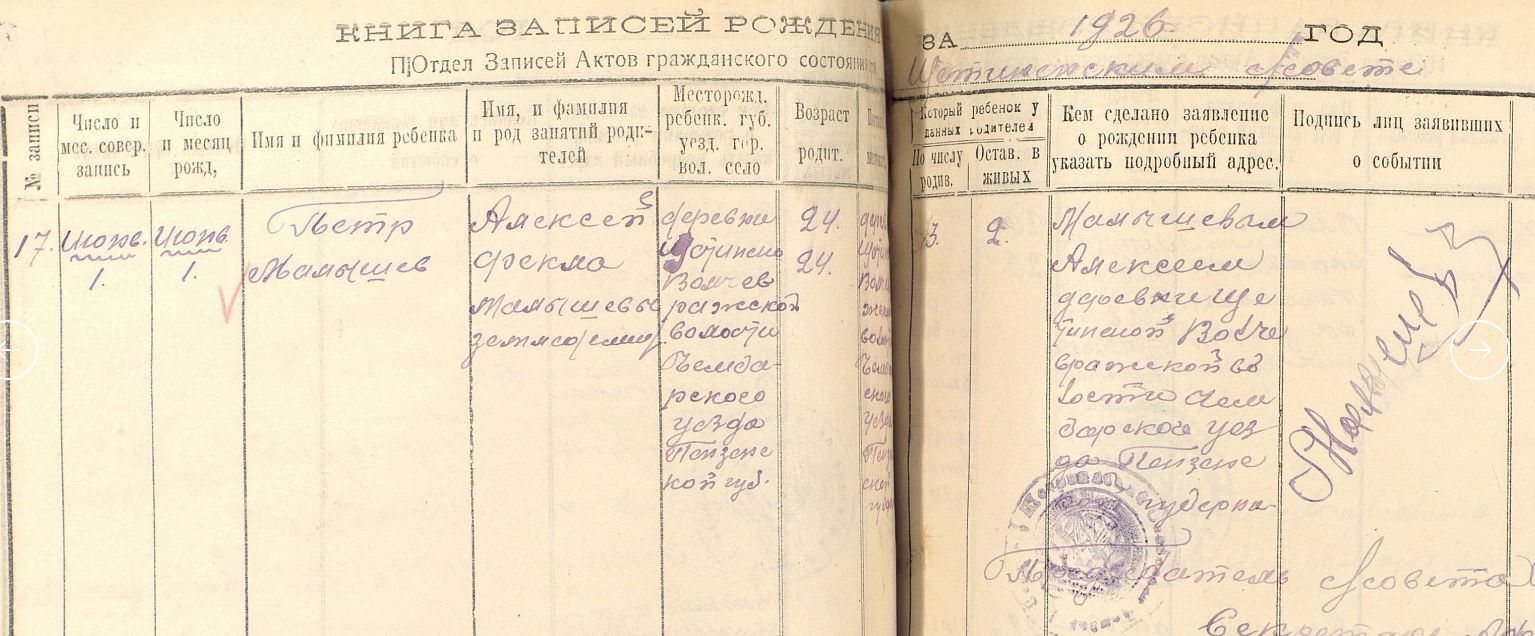 КНИГА ЗАПИСЕЙ РОЖДЕНИ
ЗА 1926 ГОД
П|Отдел Записей Актов гражданского состояни
Совете
№ записи
Число и
мес. совер.
запись
Число
и месяц
рожд,
Имя и фамилия ребенка
Имя, и фамилия
и род занятий роди-
телей
Месторожд.
ребенк. губ.
уезд. гор.
вол. село
Возраст
родит.
Который ребенок у
данных родителей
По числу
родив.
Остав. в
живых
Кем сделано заявление
о рождении ребенка
указать подробный адрес.
Подпись лиц заявивших
о событии
17.
Июнь.
1.
Июнь.
1.
Петр
Мамышев
Алексей
Фекла
Мамышевы
деревни
Волчев
ражской
волости
Чемба-
рского
уезда
Пензенс
кой губ.
24.
24.
3.
2.
Мамышевым
Алексеем
деревни Ще
тинской Волче
вражской во
лости Чем
барского уез
да Пензенс
губерни
Председатель Совета